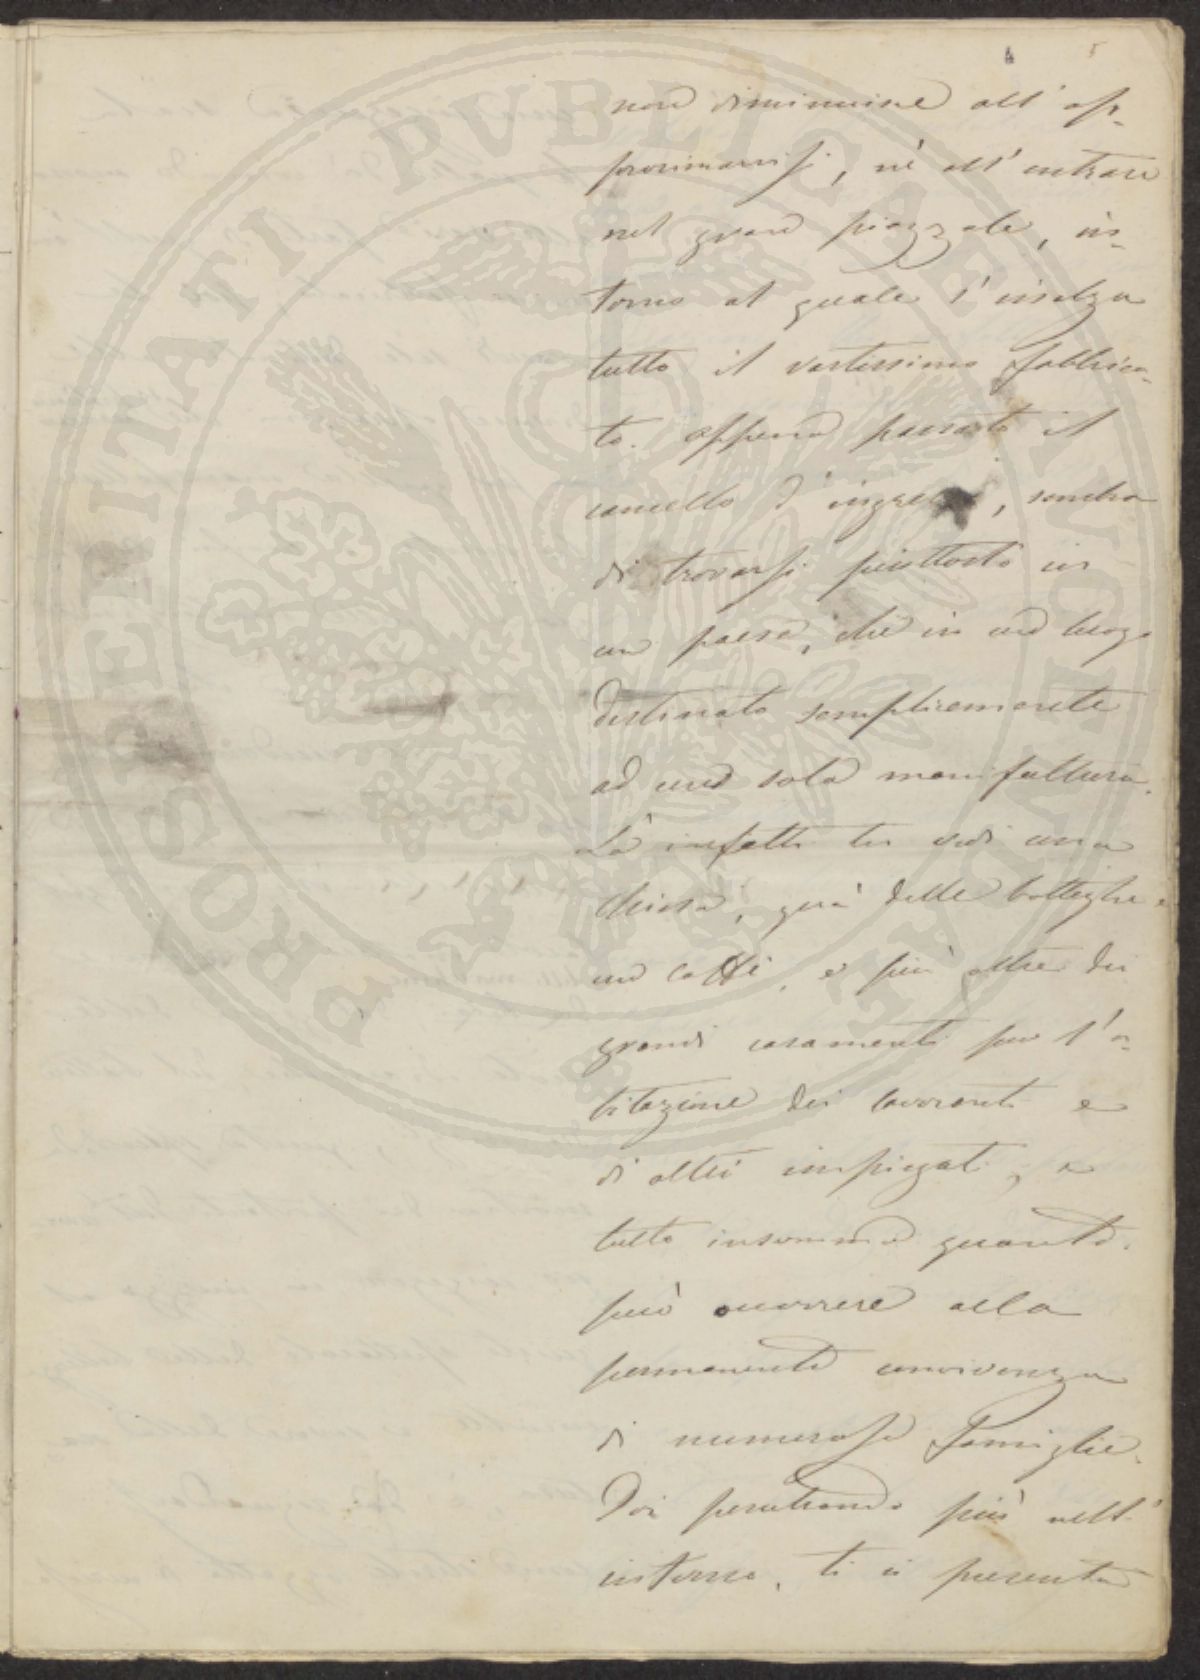 4 5
non diminuisce all' ap-
prossimarsi, nè all' entrare
nel gran piazzale, in-
torno al quale s' innalza
tutto il vastissimo fabbrica-
to. Appena passato il
cancello d' ingresso, sembra
di trovarsi piuttosto in
un paese, che in un luogo
destinato semplicemente
ad una sola manifattura.
Là infatti tu vedi una
chiesa, quà delle botteghe e
un caffè, e più oltre dei
grandi casamenti per l' a-
bitazione dei lavoranti e
di altri impiegati, e
tutto insomma quanto
può occorrere alla
permanente convivenza
di numerose famiglie.
Poi penetrando più nell'
interno, ti si presenta
PROSPERITATI PVBLICAE AVGENDAE